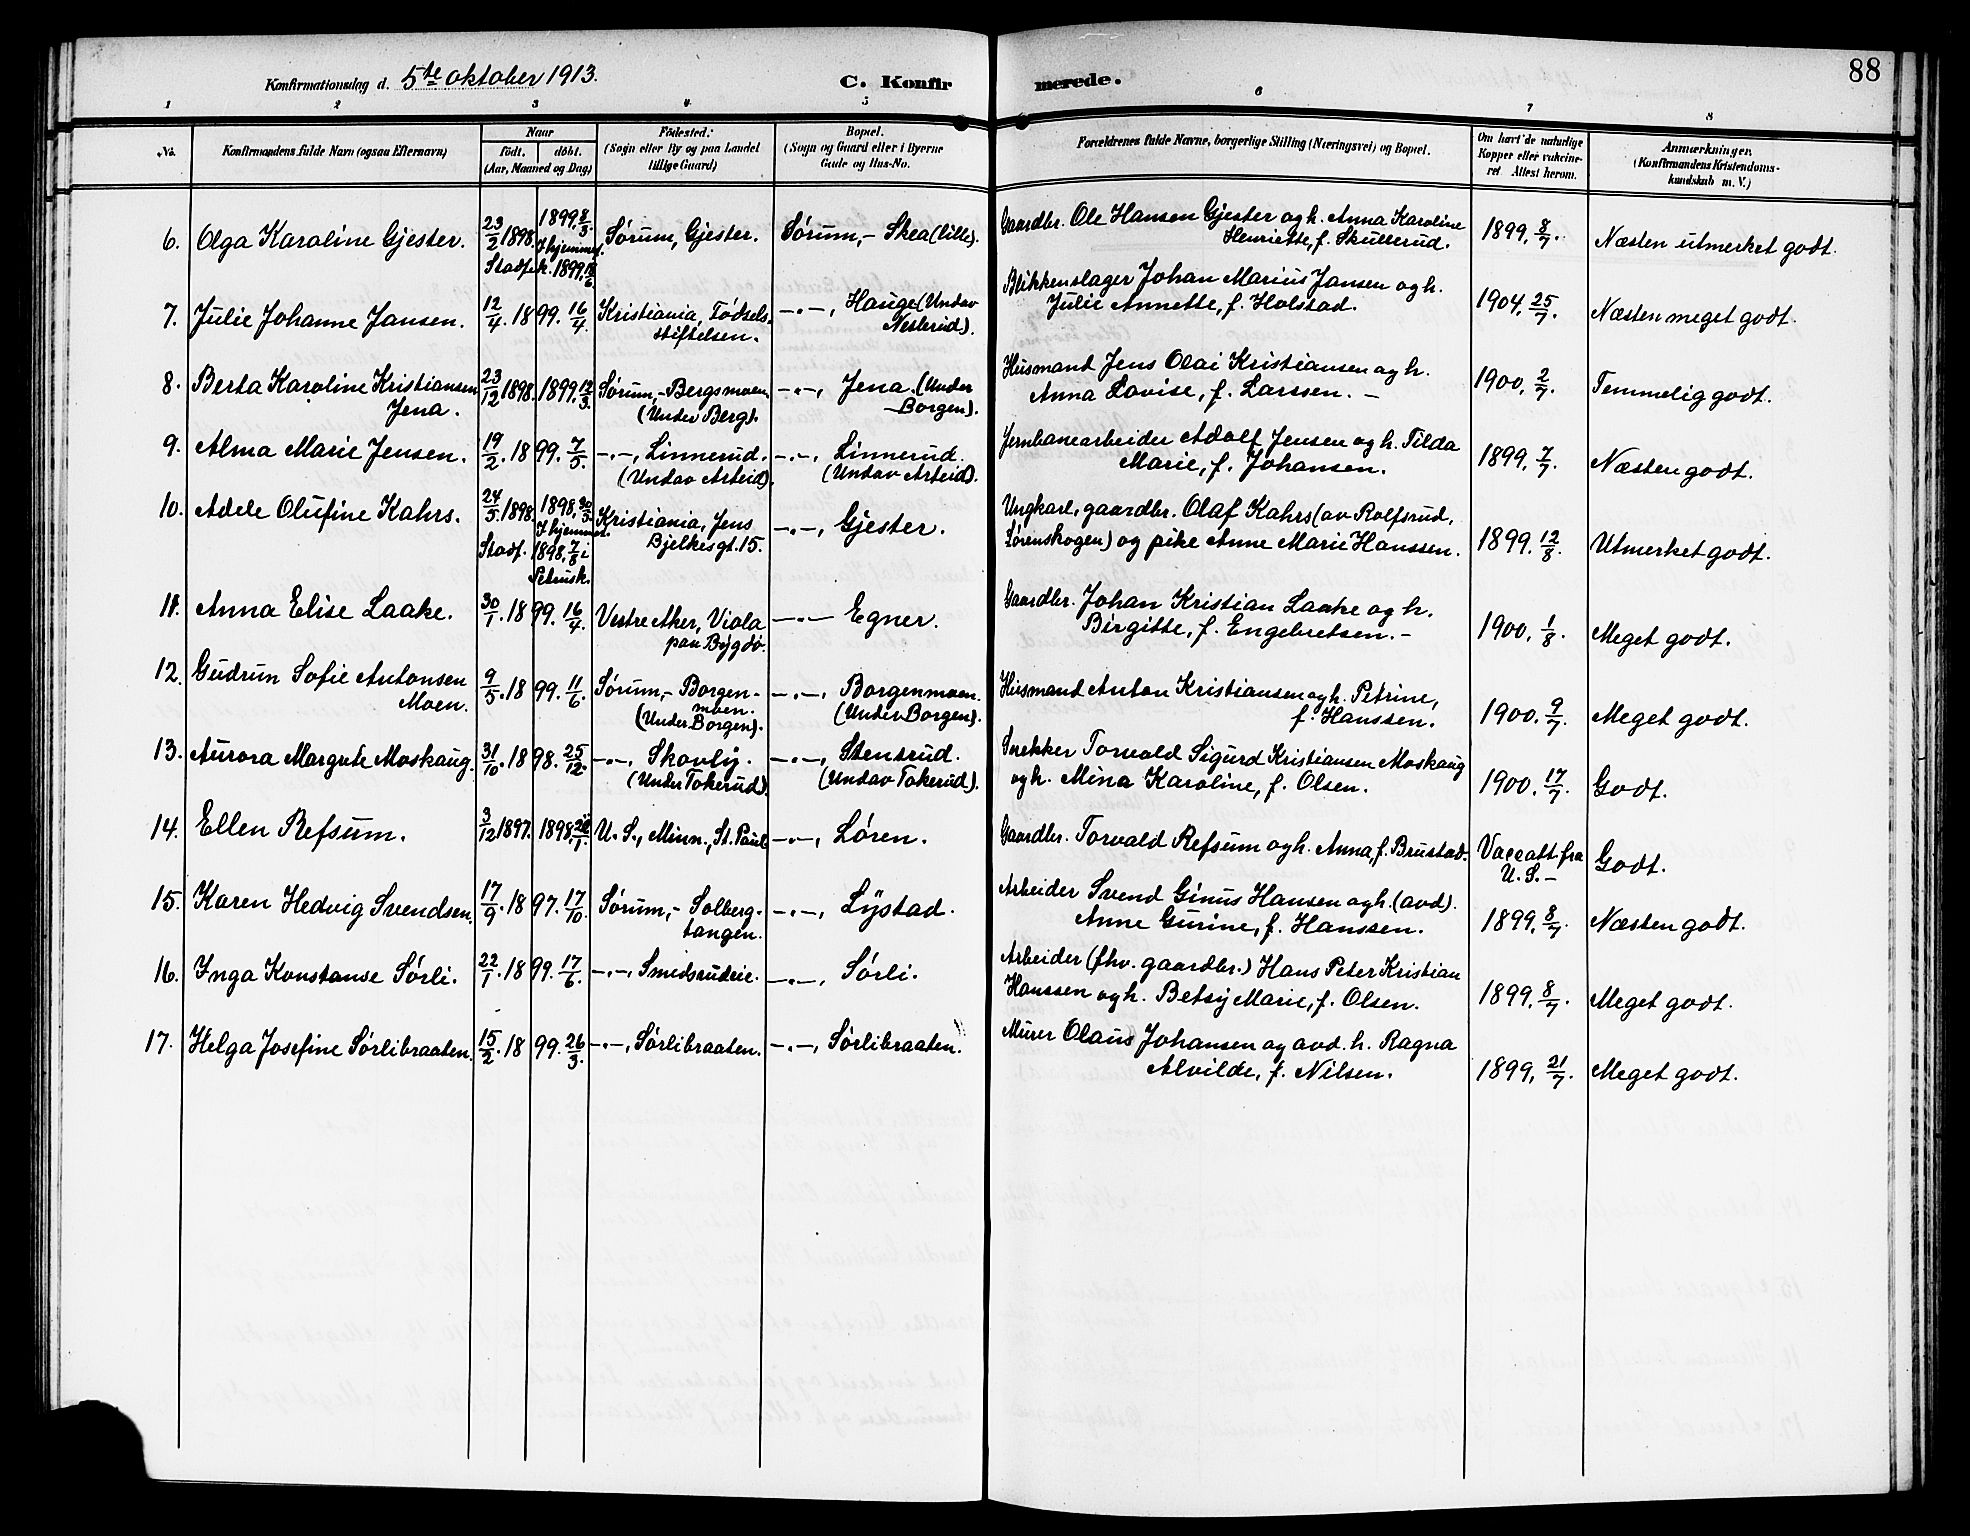 88
Konfirmationsdag d. 5te oktober 1913.
C. Konfirmerede.
1 2 3 4 5 6 7 8
No.
Konfirmandens fulde Navn (ogsaa Efternavn)
Naar
født. døbt.
(Aar, Maaned og Dag)
Fødested.
(Sogn eller By og paa Landet
tillige Gaard)
Bopæl.
(Sogn og Gaard eller i Byerne
Gade og Hus-No.
Forældrenes fulde Navne, borgerlige Stilling (Næringsvei) og Bopæl.
Om havt de naturlige
Kopper eller vakcine-
ret Attest herom.
Anmærkninger.
(Konfirmandens Kristendoms-
kundskab m. V.)
6. Olga Karoline Gjester. 23/2 1898. 1899, 8/3. Sørum, Gjester. Sørum,- Skea (lille). Gaardbr. Ole Hansen Gjester og h. Anna Karoline 1899, 8/7. Næsten utmerket godt.
I hjemmet. Henriette, f. Skullerud.
Stadf. i k. 1899, 18/6
7. Julie Johanne Jansen. 12/4. 1899. 16/4. Kristiania, Fødsels- -"-, Hauge (Undav Blikkenslager Johan Marius Jansen og h. 1904, 25/7. Næsten meget godt.
stiftelsen. Nesterud). Julie Annette, f. Holstad.
8. Berta Karoline Kristiansen 23/12 1898. 1899, 12/3. Sørum,- Bergsmoen -"-, Jena (Under Husmand Jens Olai Kristiansen og h. 1900, 2/7. Temmelig godt.
Jena. (Under Berg). Borgen). Anna Lovise, f. Larssen. -
9. Alma Marie Jensen. 19/2. 1899. 7/5. -"-, Linnerud. -"-, Linnerud. Jernbanearbeider Adolf Jensen og h. Tilda 1899, 7/7. Næsten godt.
(Undav Arteid). (Undav Arteid). Marie, f. Johansen.
10. Adele Olufine Kahrs. 24/5. 1898. 1898, 30/5. Kristiania, Jens -"-, Gjester. Ungkarl, gaardbr. Olaf Kahrs (av Rolfsrud, 1899. 12/8. Utmerket godt.
I hjemmet. Bjelkesgt. 15. Sørenskogen) og pike Anne Marie Hanssen.
Stadf. 1898, 7/8 i
Petrusk.
11. Anna Elise Laake. 30/1. 1899. 16/4. Vestre Aker, Viola -"- Egner. Gaardbr. Johan Kristian Laake og h. 1900, 1/8. Meget godt.
paa Bygdø. Birgitte, f. Engebretsen. -
12. Gudrun Sofie Antonsen 9/5. 1899. 11/6. Sørum,- Borgen- -"-, Borgenmoen. Husmand Anton Kristiansen og h. Petrine, 1900. 9/7. Meget godt.
Moen. moen. (Under Borgen). (Under Borgen). f. Hanssen.
13. Aurora Margrete Moskaug. 31/10. 1898. 25/12. -"-, Skovly. -"-, Stensrud. Snekker Torvald Sigurd Kristiansen Moskaug 1900. 17/7. Godt.
(Under Tokerud). (Undav Tokerud). og h. Mina Karoline, f. Olsen.
14. Ellen Refsum. 3/12 1897. 1898, /1. U. S., Minn., St. Paul -"-, Løren. Gaardbr. Torvald Refsum og h. Anna, f. Brustad. Vaccatt. fra Godt.
U. S. -
15. Karen Hedvig Svendsen. 17/9. 1897. 17/10. Sørum,- Solberg- -"-, Lystad. Arbeider Svend Ginus Hansen og h. (avd). 1899, 8/7. Næsten godt.
tangen. Anne Gurine, f. Hanssen.
16. Inga Konstanse Sørli. 22/1. 1899. 17/6. -"-, Smedsrudeie. -"-, Sørli. Arbeider (fhv. gaardbr.) Hans Peter Kristian 1899, 8/7. Meget godt.
Hanssen og h. Betsy Marie, f. Olsen.
17. Helga Josefine Sørlibraaten. 15/2. 1899. 26/3. -"-, Sørlibraaten. -"-, Sørlibraaten. Murer Olaus Johansen og avd. h. Ragna 1899, 21/7. Meget godt.
Alvilde, f. Nilsen.